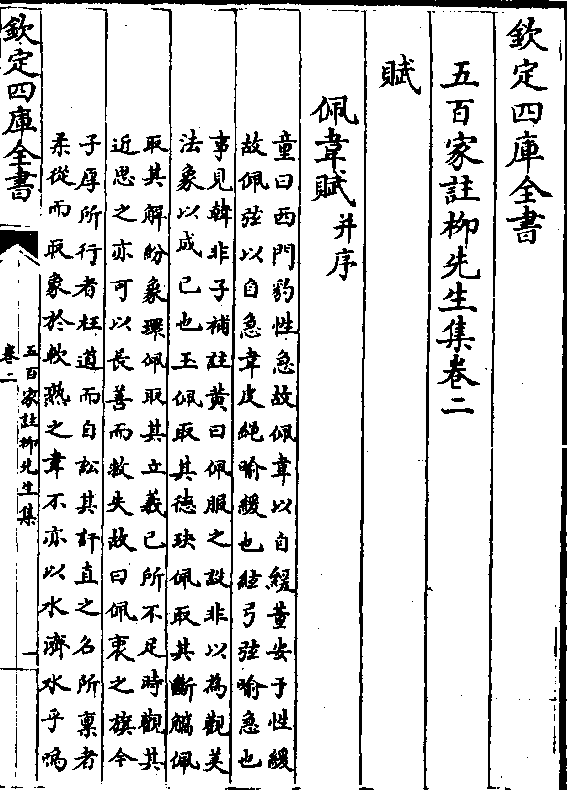 欽定四庫全書
五百家註栁先生集卷二
賦
佩韋賦并序
童曰西門豹性急故佩韋以自緩董安于性緩
故佩弦以自急韋皮䋲喻緩也弦弓弦喻急也
事見韓非子補註黄曰佩服之設非以為觀美
法象以成已也玉佩取其徳玦佩取其斷觿佩
取其解紛象環佩取其立義已所不足時觀其
近思之亦可以長善而救失故曰佩衷之旗今
子厚所行者枉道而自訟其訐直之名所禀者
柔從而取象於軟熟之韋不亦以水濟水乎嗚
欽定四庫全書
五百家註栁先生集
卷二
一